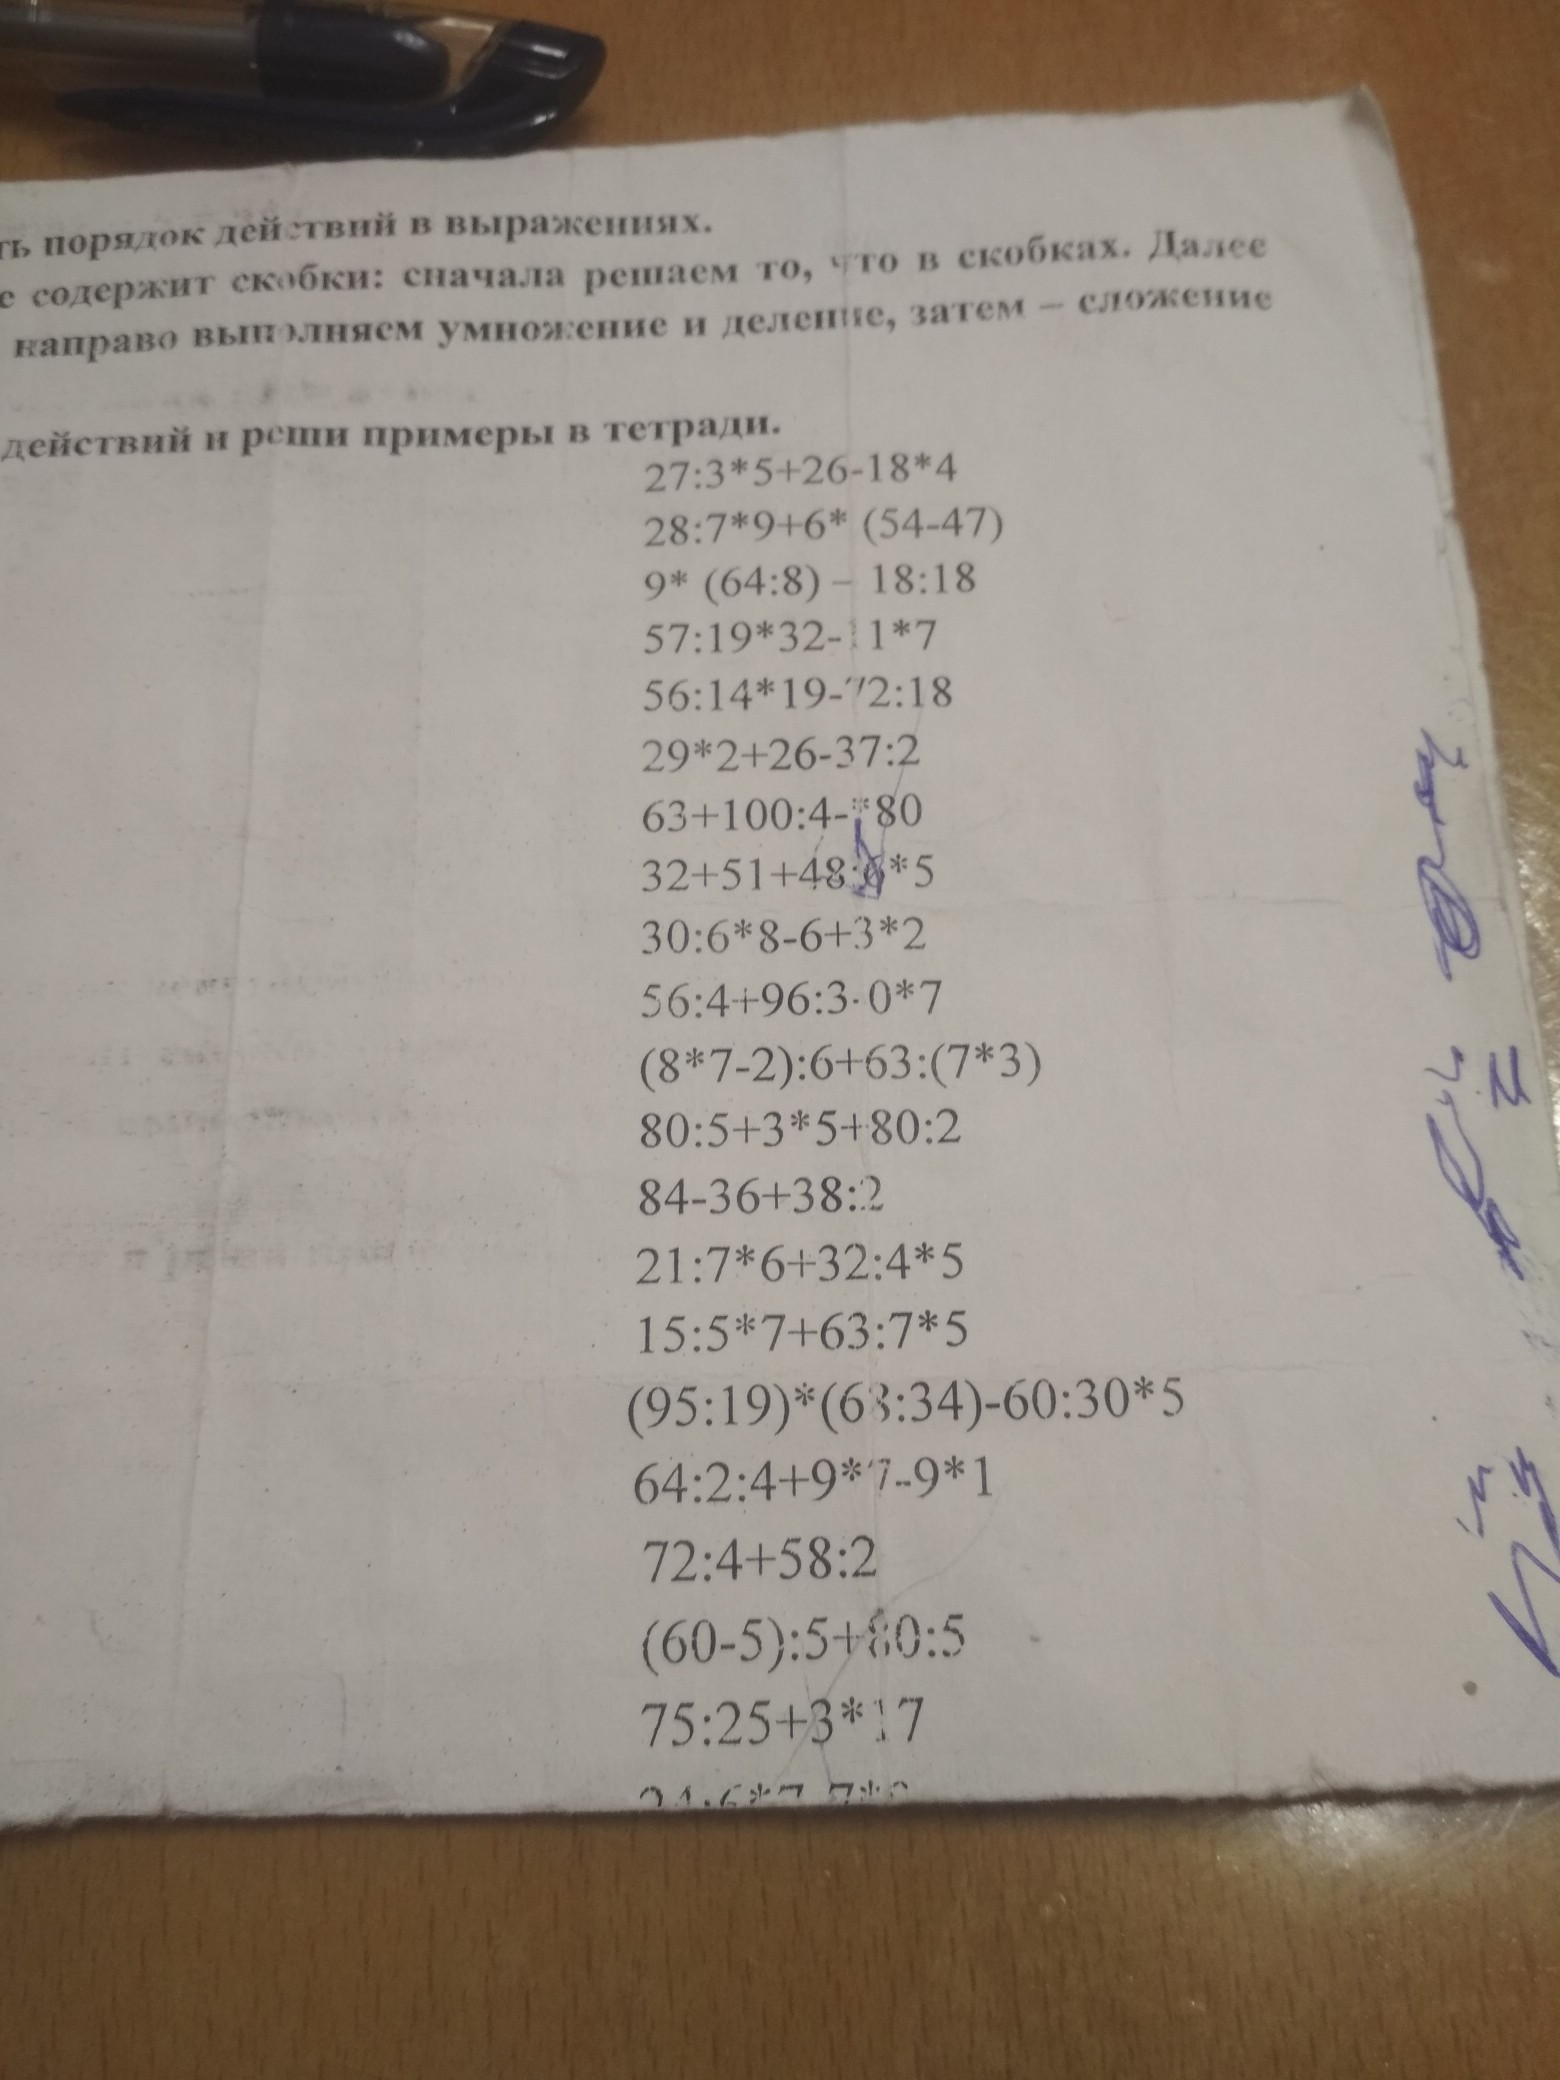 ть порядок действий в выражениях.
е содержит скобки: сначала решаем то, что в скобках. Далее
направо выполняем умножение и деление, затем – сложение
действий и реши примеры в тетради.
27:3*5+26-18*4
28:7*9+6* (54-47)
9* (64:8) – 18:18
57:19*32-11*7
56:14*19-72:18
29*2+26-37:2
63+100:4-*80
32+51+48:6*5
30:6*8-6+3*2
56:4+96:3-0*7
(8*7-2):6+63:(7*3)
80:5+3*5+80:2
84-36+38:2
21:7*6+32:4*5
15:5*7+63:7*5
(95:19)*(68:34)-60:30*5
64:2:4+9*7-9*1
72:4+58:2
(60-5):5+80:5
75:25+3*17